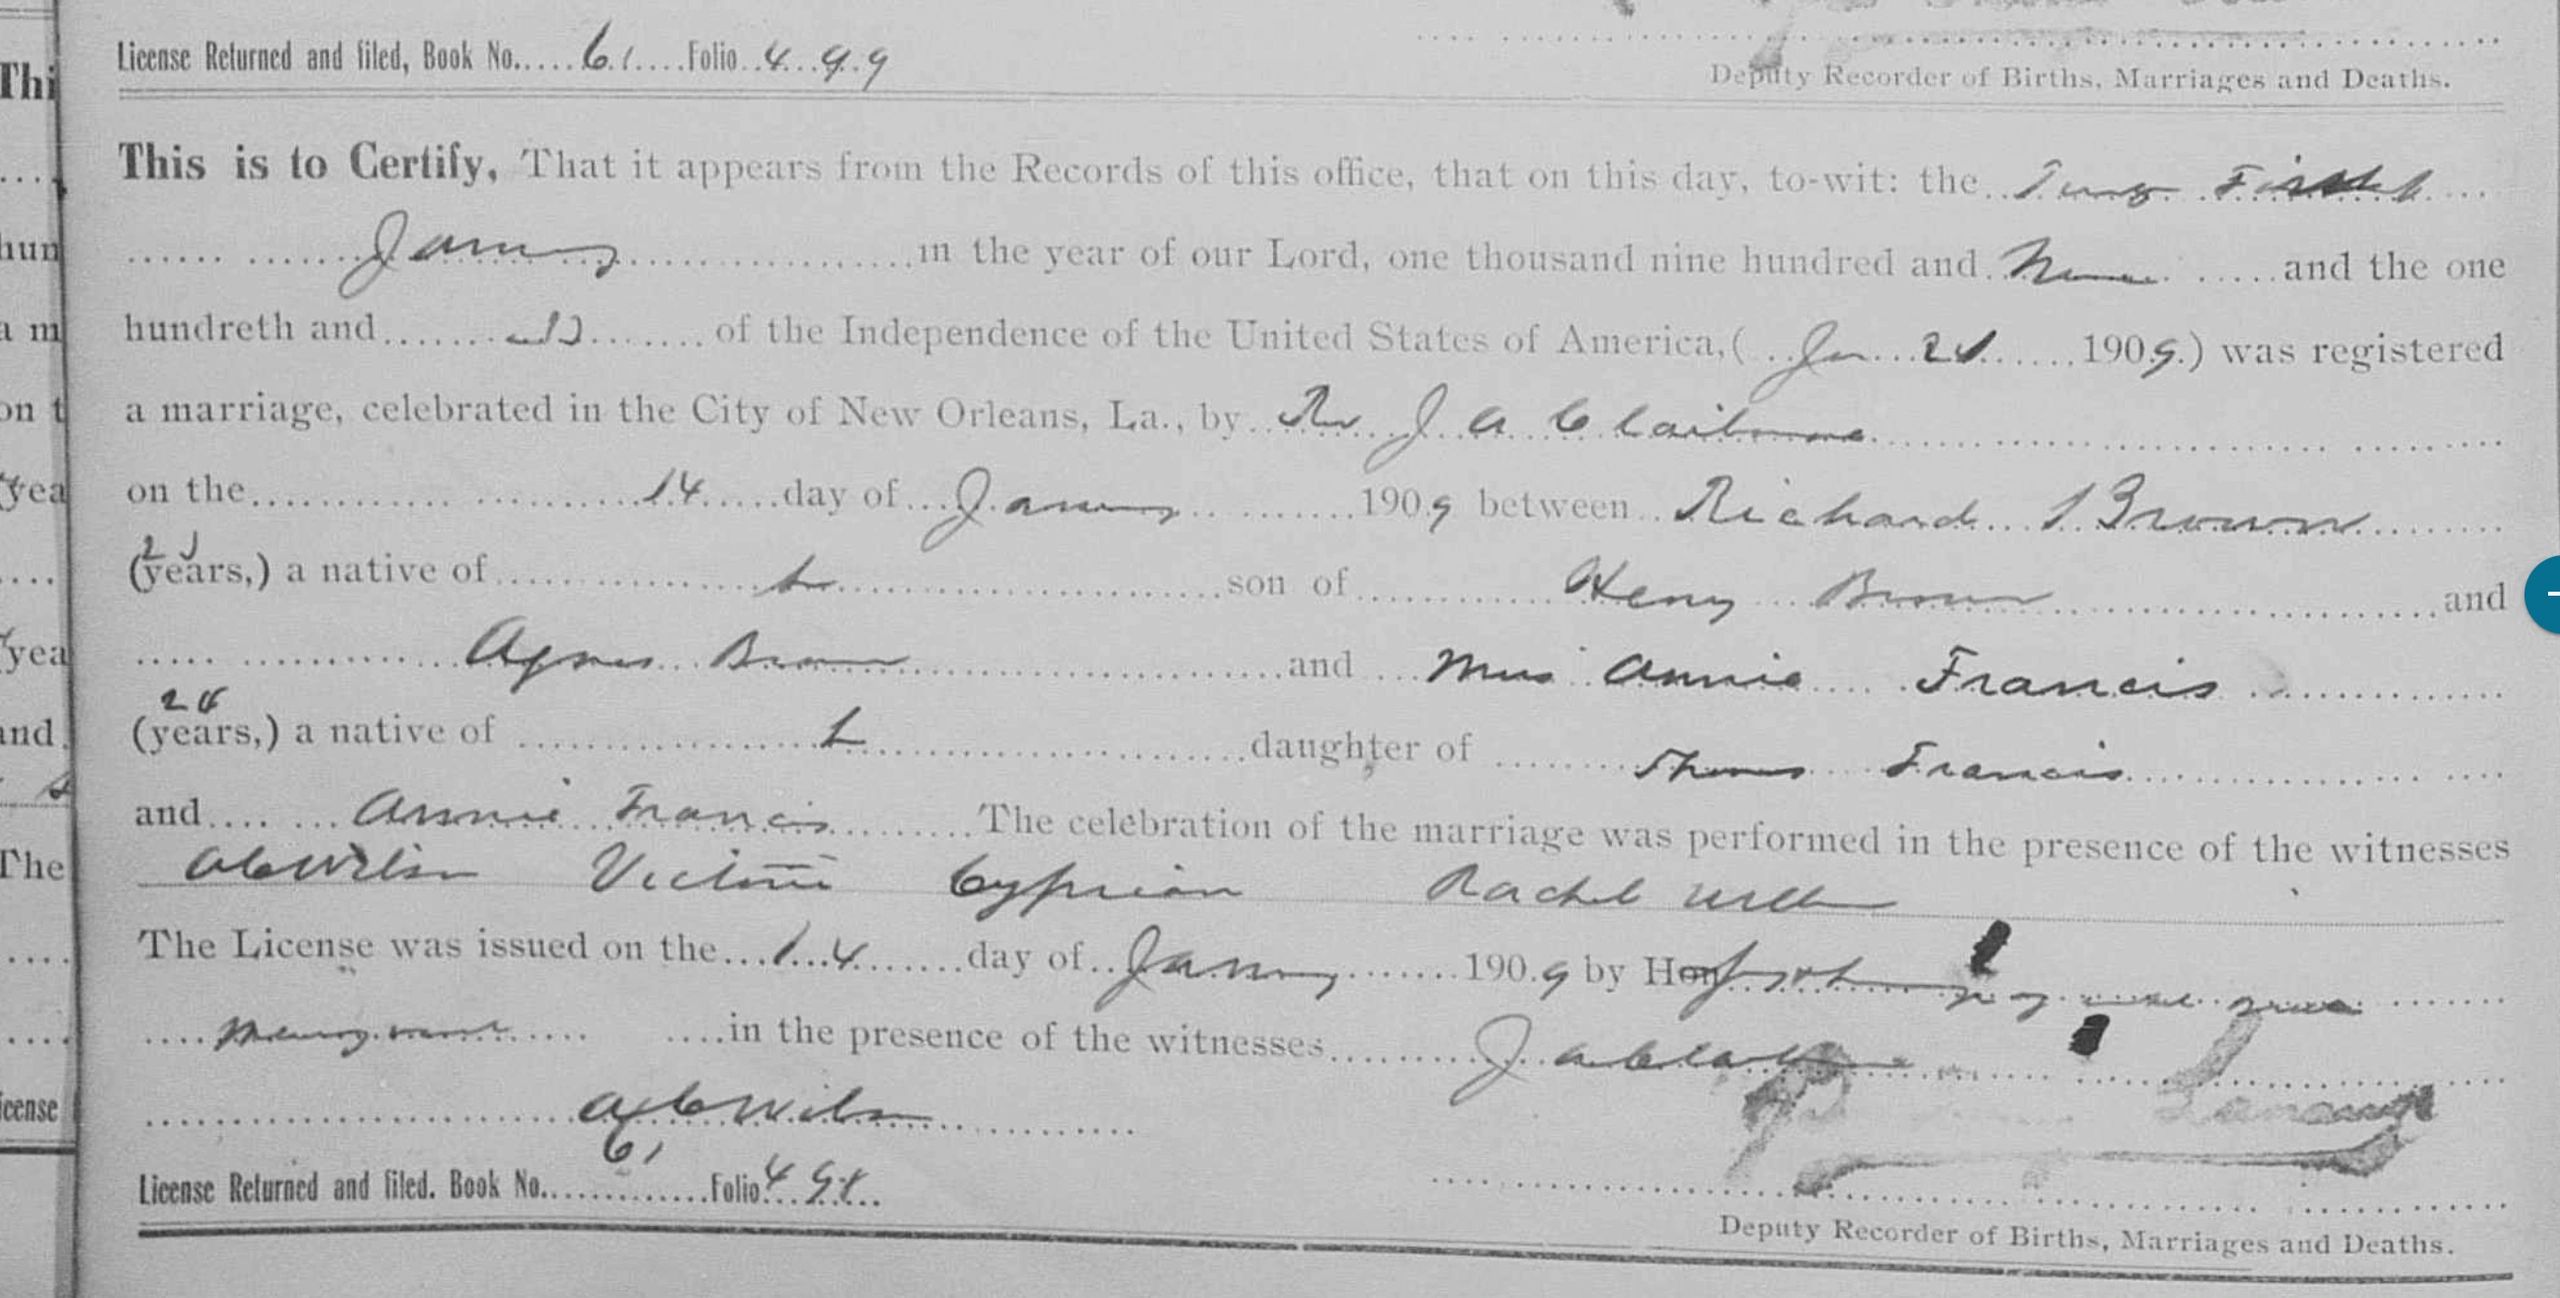 License Returned and filed, Book No. 61 Folio 499
Deputy Recorder of Births, Marriages and Deaths.
Thi
This is to Certify, That it appears from the Records of this office, that on this day, to-wit: the
hun
in the year of our Lord, one thousand nine hundred and Nine and the one
a m
hundreth and of the Independence of the United States of America, ( Jan 21 1909.) was registered
on t
a marriage, celebrated in the City of New Orleans, La., by Rev J A Claiborne
yea
on the 14 day of January 1909 between Richard Brown
(years,) a native of son of Henry Brown and
yea
Agnes Brown and Miss Annie Francis
(years,) a native of L daughter of Thomas Francis
and
and Annie Francis The celebration of the marriage was performed in the presence of the witnesses
The
A C Wilson Victoria Cyprian Rachel
The License was issued on the 14 day of January 1909 by Hon
in the presence of the witnesses J A
icense
A C Wilson
License Returned and filed. Book No. 61 Folio
Deputy Recorder of Births, Marriages and Deaths.